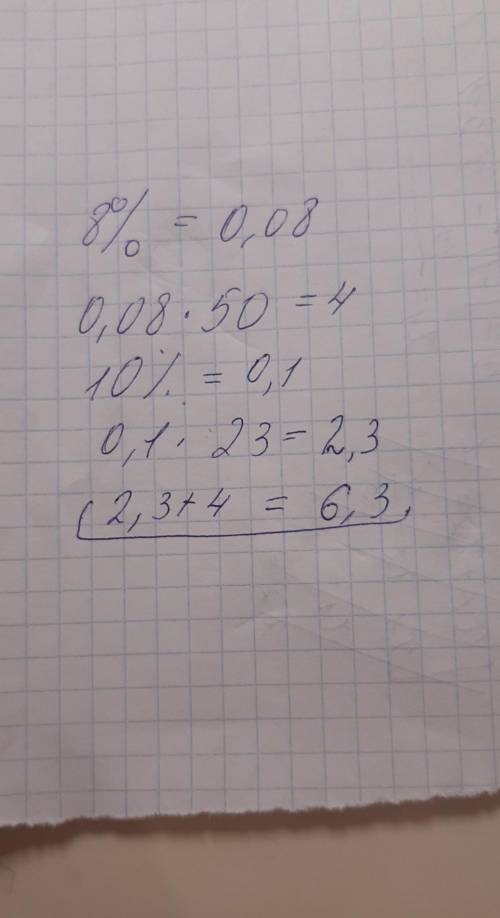 8% = 0,08
0,08 · 50 = 4
10% = 0,1
0,1 · 23 = 2,3
2,3 + 4 = 6,3